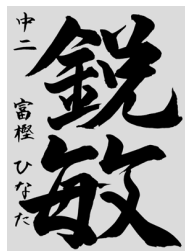 鋭敏
中二 富樫 ひなた